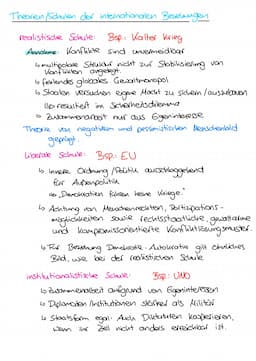 Theorien/Schulen der internationalen Beziehungen
realistische Schule: Bsp: Kalter Krieg
Annahme: Konflikte sind unvermeidbar
↳ multipolare Struktur nicht zur Stabilisierung von
Konflikten angelegt
↳ fehlendes globales Gewaltmonopol
↳ Staaten versuchen eigene Macht zu sichern/auszubauen
↳ resultiert im Sicherheitsdilemma
↳ Zusammenarbeit nur aus Eigeninteresse
Theorie von negativem und pessimistischen Menschenbild
geprägt.
liberale Schule: Bsp: EU
↳ innere Ordnung/Politik ausschlaggebend
für Außenpolitik
"Demokratien führen keine Kriege."
↳ Achtung von Menschenrechten, Partizipations-
möglichkeiten sowie rechtsstaatliche, gewaltarme
und kompromissorientierte Konfliktlösungsmuster.
↳ Für Beziehung Demokratie-Autokratie gilt ähnliches
Bild, wie bei der realistischen Schule
institutionalistische Schule: Bsp: UNO
↳ Zusammenarbeit aufgrund von Eigeninteressen
↳ Diplomaten/Institutionen stärker als Militär
↳ Staatsform egal: Auch Diktaturen kooperieren,
wenn ihr Ziel nicht anders erreichbar ist.